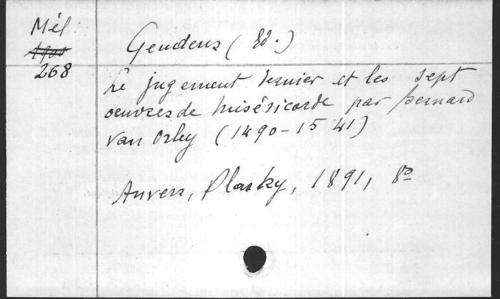 Mél
268
Geudens (Ed.)
Le jugement dernier et les sept
oeuvres de miséricorde par Bernard
van Orley (1490-1541)
Anvers, Plasky, 1891, 8º